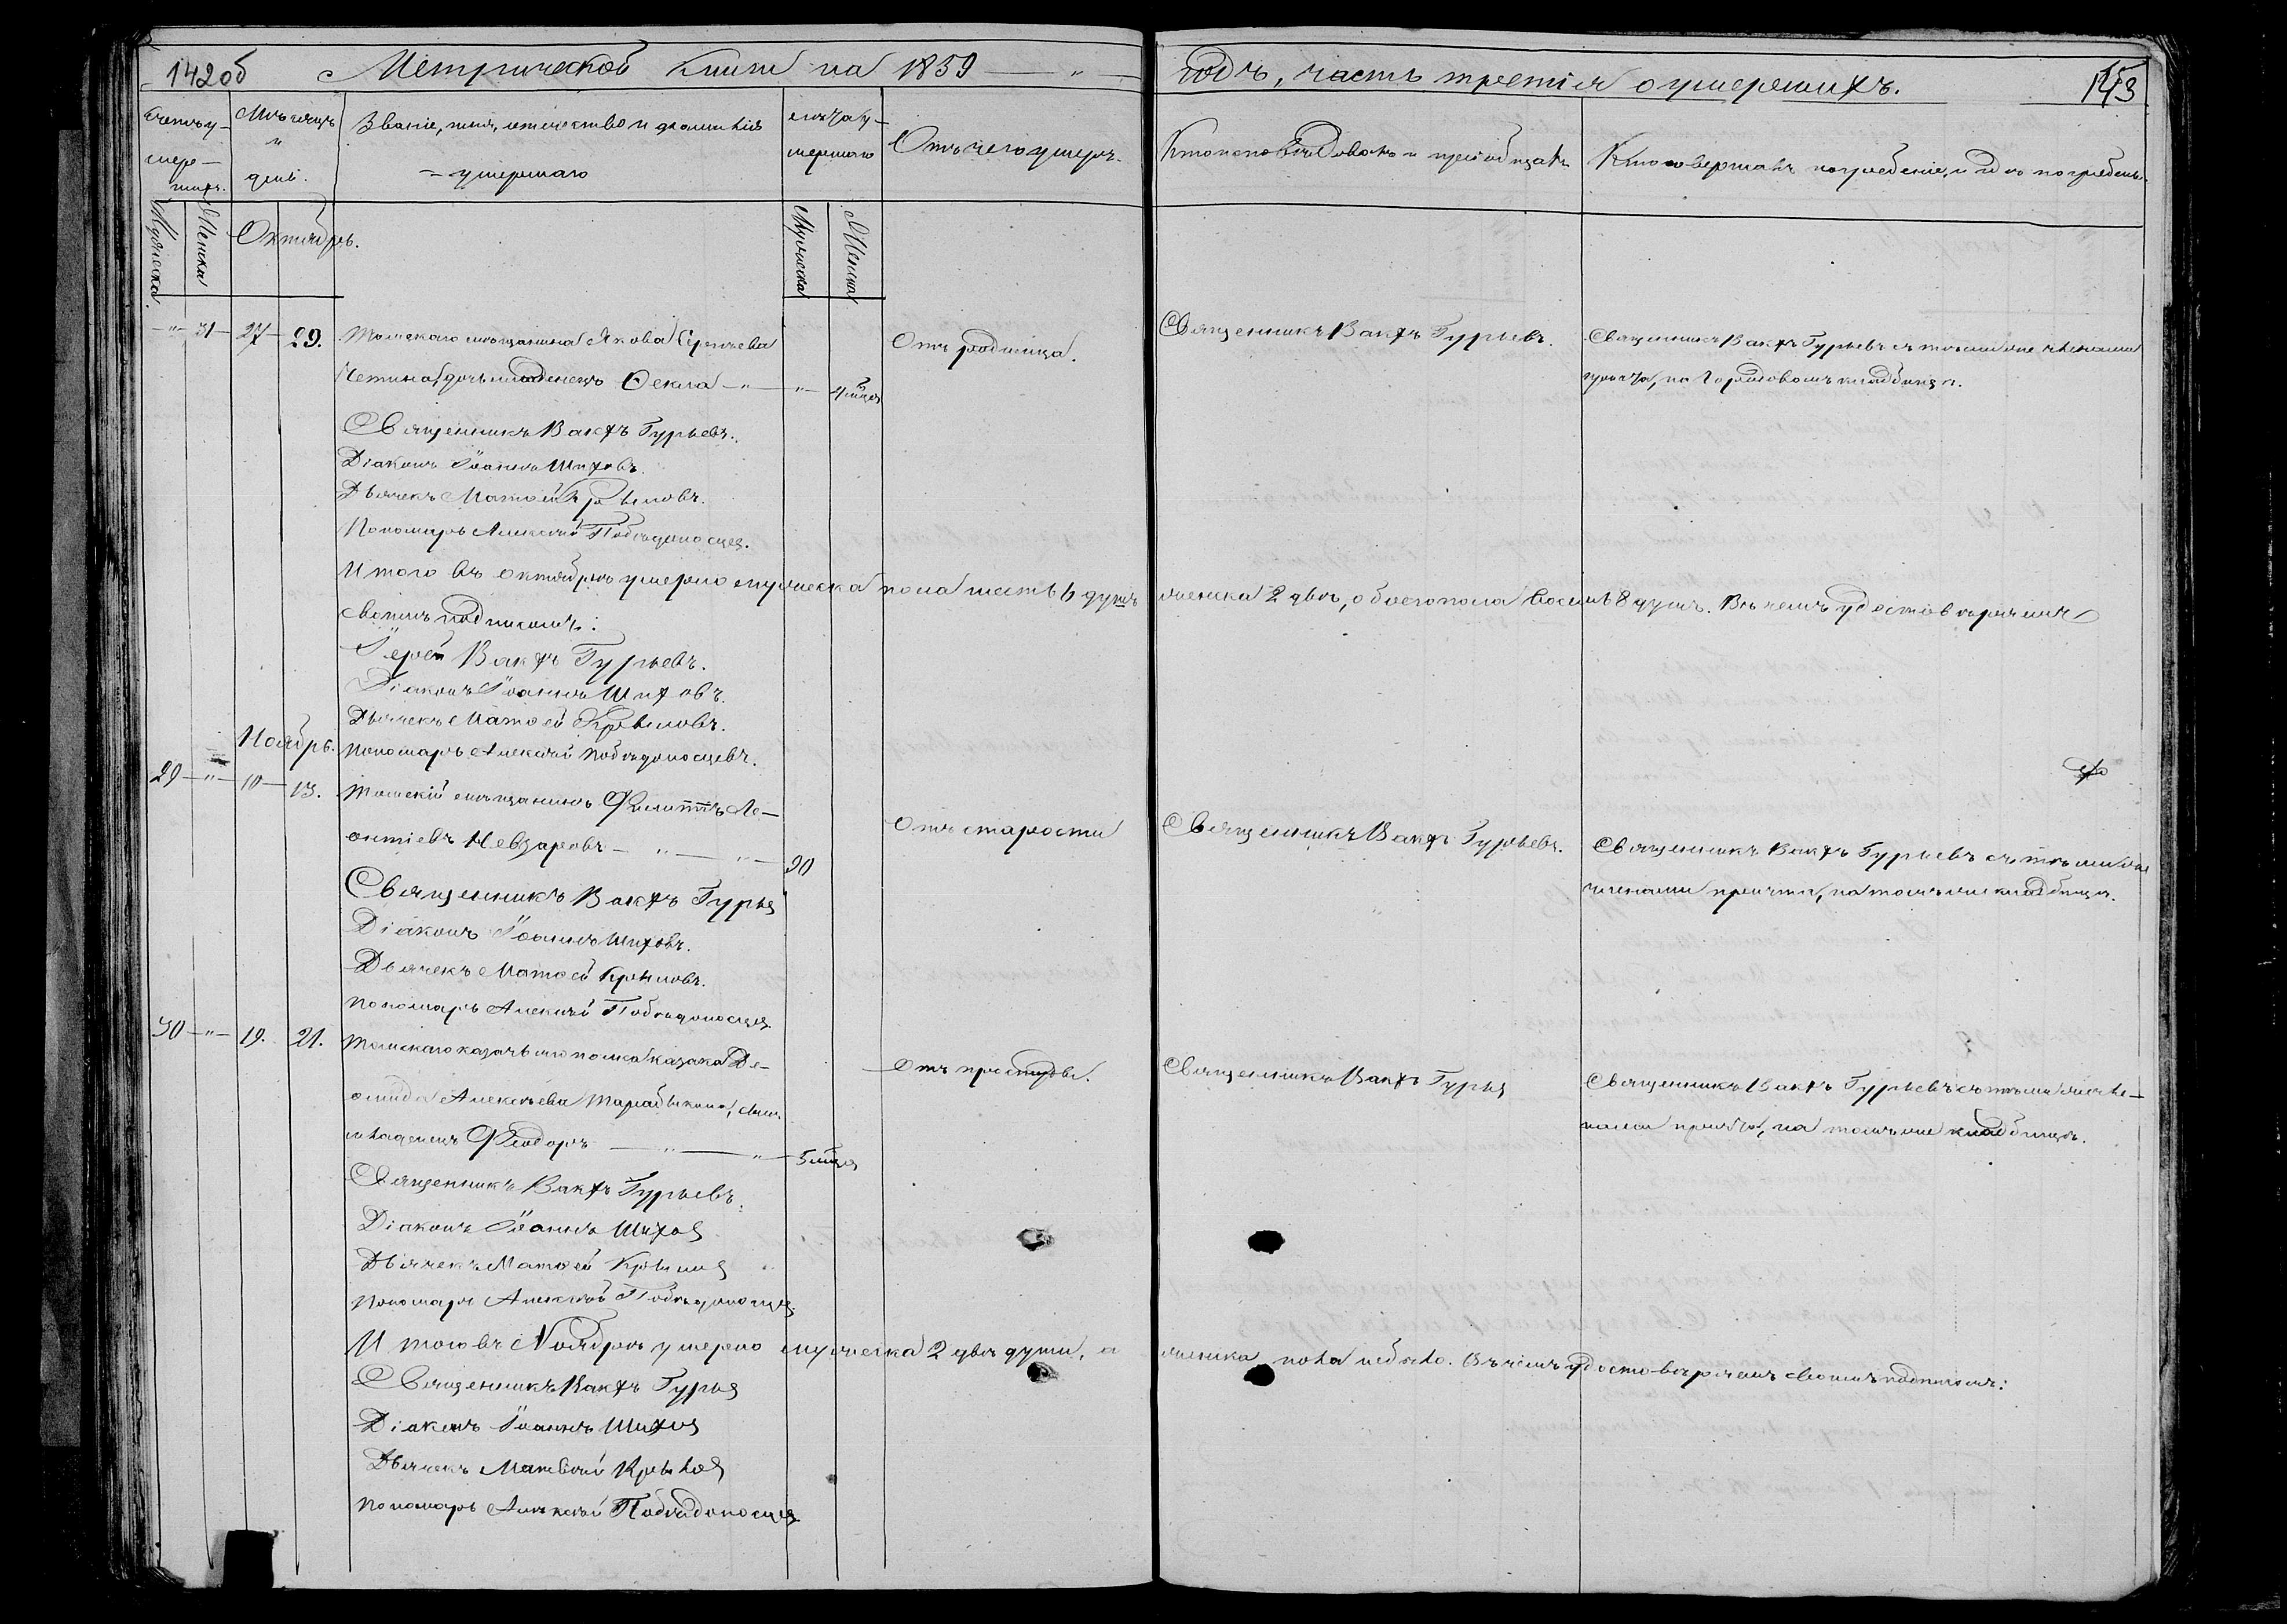 142 об
Метрической книги на 1859 — " — годъ, часть третія о умершихъ.
143
Счетъ у-
мер-
шихъ.
Мѣсяцъ
и
день.
Званіе, имя, отчество и фамилія
умершаго
лѣта у-
мершаго
Отъ чего умеръ.
Кто исповѣдовалъ и пріобщалъ
Кто совершалъ погребеніе, и гдѣ погребены.
Мужеска.
Женска
Октябрь.
Мужеска
Женска
— " — 31 — 27 — 29. Томскаго мѣщанина Якова Сергѣева
дочь младенецъ Ѳекла — " — " — 4 мѣсяц
Отъ родимца.
Священникъ Вакхъ Гурьевъ.
Священникъ Вакхъ Гурьевъ съ тѣми же членами
причта, на Городовомъ кладбищѣ.
Священникъ Вакхъ Гурьевъ.
Діаконъ Іоаннъ Шиховъ.
Дьячекъ Матѳей Крыловъ.
Пономарь Алексѣй Побѣдоносцев.
Итого въ октябрѣ умерло мужеска пола шесть 6 душъ женска 2 двѣ, обоего пола восемь 8 душъ. Въ чемъ удостовѣряемъ
своимъ подписомъ:
Іерей Вакхъ Гурьевъ.
Діаконъ Іоаннъ Шиховъ.
Дьячекъ Матѳей Крыловъ.
Ноябрь.
Пономарь Алексѣй Побѣдоносцевъ.
29 — " — 10 — 13. Томскій мѣщанинъ Филиппъ Ле-
онтіевъ Невзаровъ — " — " — 90
Отъ старости
Священникъ Вакхъ Гурьевъ.
Священникъ Вакхъ Гурьевъ съ тѣми же
членами причта, на томъ же кладбищѣ.
Священникъ Вакхъ Гурьев
Діаконъ Іоаннъ Шиховъ.
Дьячекъ Матѳей Крыловъ.
Пономарь Алексѣй Побѣдоносцев
30 — " — 19. 21. Томскаго казачьяго полка казака Де-
омида Алексѣева Тарабыкина, сынъ
младенецъ Ѳеодоръ — " — " — 5 мѣсяц
Отъ простуды.
Священникъ Вакхъ Гурьев
Священникъ Вакхъ Гурьевъ съ тѣми же чле-
нами причта, на томъ же кладбищѣ.
Священникъ Вакхъ Гурьевъ.
Діаконъ Іоаннъ Шихов
Дьячекъ Матѳей Крылов
Пономарь Алексѣй Побѣдоносцев
Итого въ Ноябрѣ умерло мужеска 2 двѣ души, а женска пола небыло. Въ чемъ удостовѣряемъ своимъ подписомъ:
Священникъ Вакхъ Гурьев
Діаконъ Іоаннъ Шихов
Дьячекъ Матвѣй Крылов
Пономарь Алексѣй Побѣдоносцев